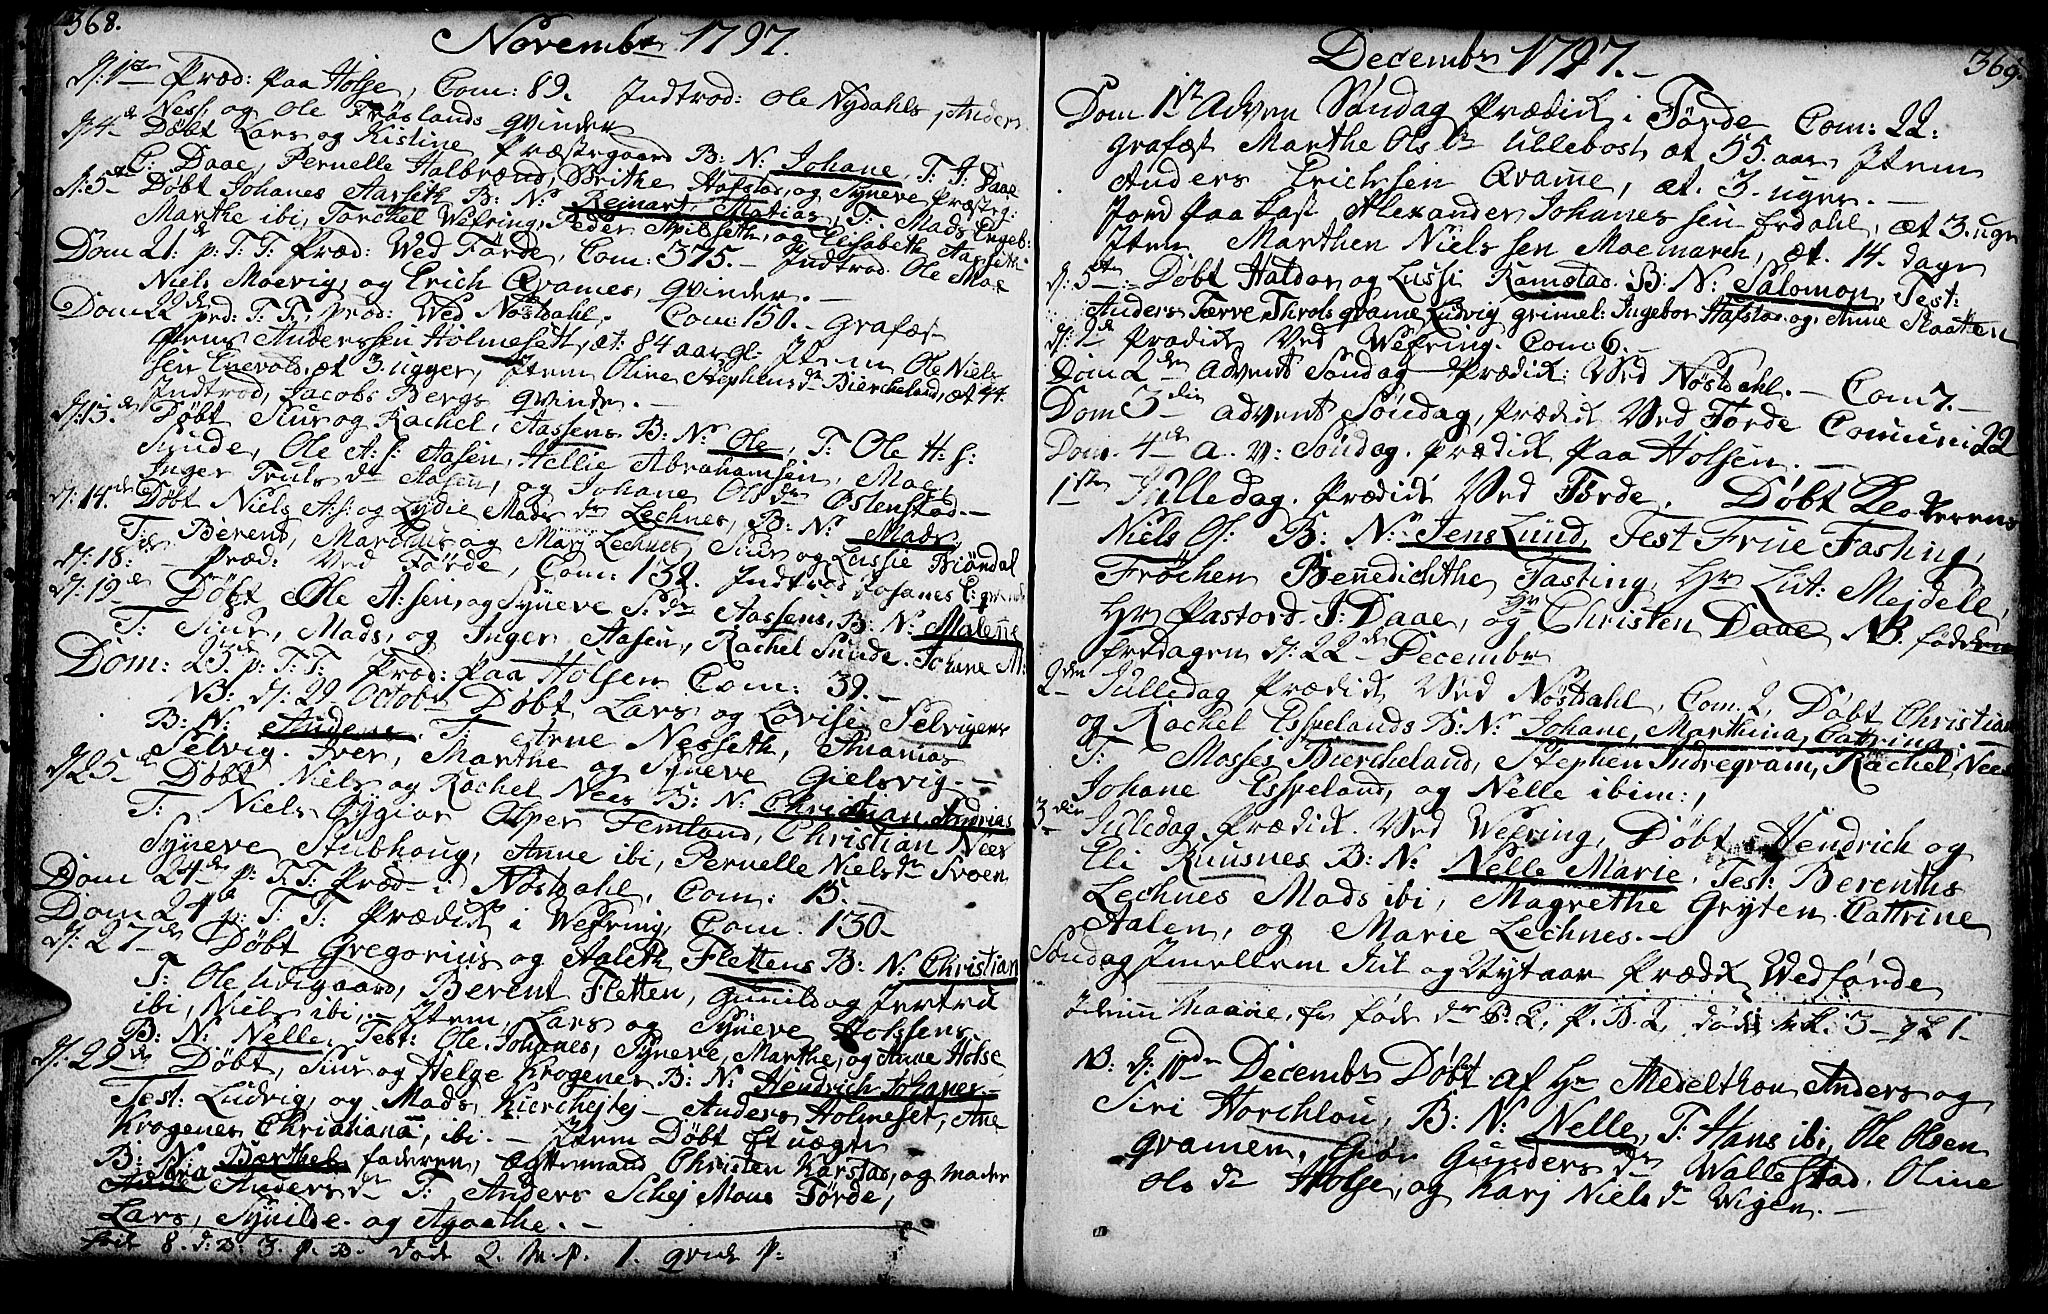 368.
Novembr 1797.
D: 1ste Præd: paa Holse, Com: 89. Indtrod: Ole Nydahls, Anders
Ness, og Ole Frøslands qvinder
D: 4de Døbt Lars og Kistine Præstegaard B: N: Johane, T. J: Daae
C: Daae, Pernelle Halbrænd, Brithe Hafstad, og Syneve Præsteg:
D: 5te Døbt Johanes Aarseth B: N: Reinart Matias, T. Mads Engeb:
Marthe ibi, Torchel Wefring, Peder Apilseth, og Elisabeth Aarseth
Dom 21. p: T. T. Præd: Ved Førde, Com: 375 - Indtrod. Ole Moe
Niels Moevig, og Erich Qvames, qvinder. -
Dom 22de p: T. T. Præd: Ved Nøstdahl. Com: 150. - Grafæst
Jens Anderssen Holmeseth, æt: 84 aar gl: Item Ole Niels
sen Enevold. æt 3. ugger, Item Oline Stephens dr Biercheland, æt 44.
Indtrod, Jacobs Bergs qvinde. -
D: 13. Døbt Siur og Rachel, Aassens B: Nr Ole, T: Ole H: s:
Sunde, Ole A: s: Aasen, Hellie Abrahamsen, Moe,
Inger Truls dr Aasen, og Johane Ols dr Østenstad. -
D: 14de Døbt Niels A: s: og Lydie Mads dr Lechnes, B: Nr Mads,
T. Berent, Marthus og Mari Lechnes, Siur og Lussie Biøndal
D: 18: Præd: Ved Førde, Com: 139. Indtrod Johanes
D: 19de Døbt Ole A: sen, og Syneve S: dr Aassens, B: N: Malene
T. Siur, Mads, og Inger Aasen, Rachel Sunde. Johane M:
Dom: 23de p: T. T. Præd: paa Holsen Com: 39. -
NB: D: 29 Octobr Døbt Lars og Lovise Selvigens
B: N: Anders. T. Arne Nesseth, Ananias
Selvig. Iver, Marthe og Syneve Gielsvig. -
D: 25de Døbt Niels og Rachel Nees B: N: Christian, Andrias
T: Niels Tygior Olper Femland, Christian Nees
Syneve Stubhoug, Anne ibi, Pernelle Niels dr Svoen
Dom 24de p: T. T. Præd i Nøstdahl, Com: 15. -
Dom 24de p: T. T. Prædik i Wefring, Com. 130 -
D: 27de Døbt Gregorius og Aaleth Flettens B: N: Christian
T: Ole Udigaard, Berent Fletten, Gunild og Jertru
ibi, Niels ibi, - Item, Lars og Syneve Holssens
B: N: Nelle. Test: Ole. Johanes, Syneve, Marthe, og Anne Holse
D: 29de Døbt, Siur og Helge Krogenes B: N: Hendrich Johanes -
Test: Ludvig, og Mads, Kierchejtej - Anders Holmeset, Ane
Krogenes Christiana, ibi. - Item Døbt Et uægte
B: N: Barthel. faderen, ægtemand Christen Karstad, og moder
Siria Anders dr T: Anders Schej Mons Førde,
Lars, Synilde. og Agaathe. -
fød 8. d: B: 3. p. B. døde 2. M. p. 1. qvind p:
369.
Decembr 1797. -
Dom 1ste Adven Søndag Prædik i Førde Com: 22:
Grafæst Marthe Ols dr Ullebost æt 55. aar, Item
Anders Erichsen Qvame, æt. 3. uger. -
Jord paa Kast Alexander Johanessen Erdahl, æt 3. uger
Item Marthen Nielssen Moemarch, æt. 14. dage
D: 5te - Døbt Haldor og Lussi Ramstad B: N: Salomon, Test:
Anders Færre, Throls qvame, Ludvig grimel: Ingebor Hafstad, og Anne Slaatten
D: 9de Prædik Ved Wefring. Com: 6. -
Dom 2den Advent Søndag Prædik: Ved Nøstdahl. - Com 7. -
Dom 3die Advent Søndag, Prædik Ved Førde Comuni 22
Dom. 4de A. V: Søndag. Prædik paa Holsen. -
1ste Julledag. Prædik Ved Førde. Døbt Klokkerens
Niels Ol: B: Nr Jens Lund, Test Frue Fasting,
Frøchen Bennedichthe Fasting, Hr Lut: Mejdell,
Hr Pastord. J: Daae, og Hr Christen Daae NB. født
fredagen D: 22de Decembr
2den Julledag Prædik Ved Nøstdahl, Com. 2, Døbt Christian
og Rachel Espelands B: Nr Johane, Marthina, Cattrina.
T: Mosses Biercheland, Stephen Indregram, Rachel Nees
Johane Espeland, og Nelle ibim:,
3die Julledag Prædik. Ved Wefring, Døbt Hendrich og
Eli Kuusnes B: N: Nelle Marie. Test: Berenthus
Lechnes Mads ibi, Magrethe Gryten Cattrine
Aalen, og Marie Lechnes. -
Søndag Imellem Jul og Nytaar Prædik Ved førde
Idenne Maane, er føde dr B. 2, p. B. 2, døde M. K. 3 - q K 1.
NB. D: 10de Decembr Døbt af Hr Medelthon Anders og
Siri Horchlou, B: N: Nelle, T: Hans ibi, Ole Olsen
qvamen, Giør Gunders dr Wallestad. Oline
Ols dr Holse, og Karj Niels dr Wigen. -